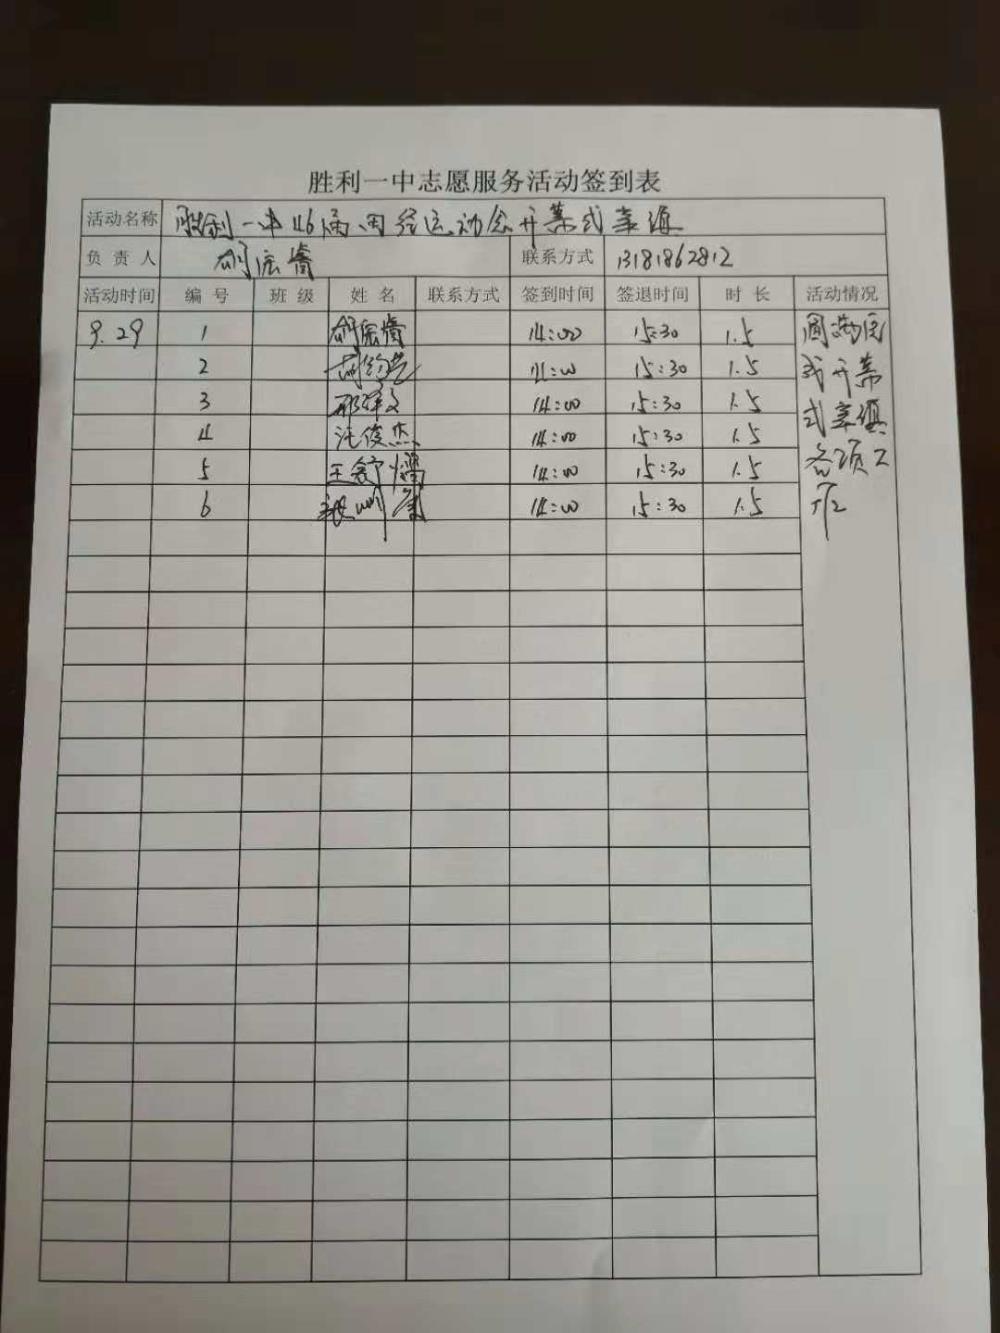 胜利一中志愿服务活动签到表
活动名称 胜利一中46届田径运动会开幕式
负责人 联系方式 13181862812
活动时间 编号 班级 姓名 联系方式 签到时间 签退时间 时长 活动情况
9.29 1 14:00 15:30 1.5 圆满完
2 14:00 15:30 1.5 成开幕
3 14:00 15:30 1.5 式
4 汪俊杰 14:00 15:30 1.5
5 王舒 14:00 15:30 1.5 各项工
6 14:00 15:30 1.5 作